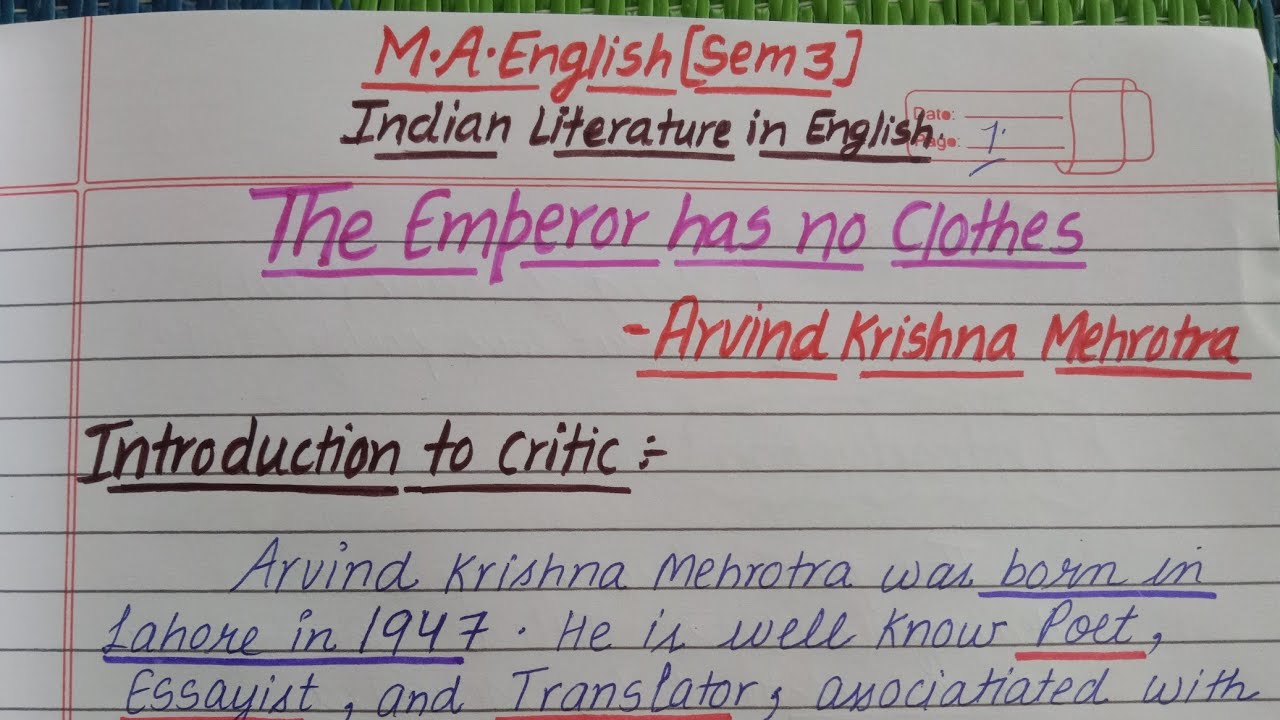 M.A.English [Sem 3]
Indian Literature in English.
Date:
Page: 1.
The Emperor has no Clothes
- Arvind Krishna Mehrotra
Introduction to Critic :-
Arvind Krishna Mehrotra was born in
Lahore in 1947. He is well know Poet,
Essayist, and Translator, associatiated with